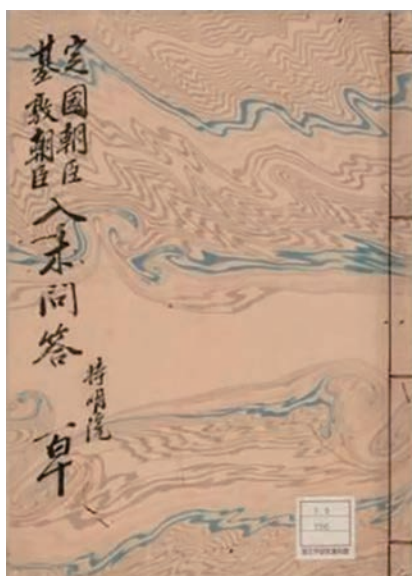 定國朝臣
基敦朝臣
入木問答
持明院
草